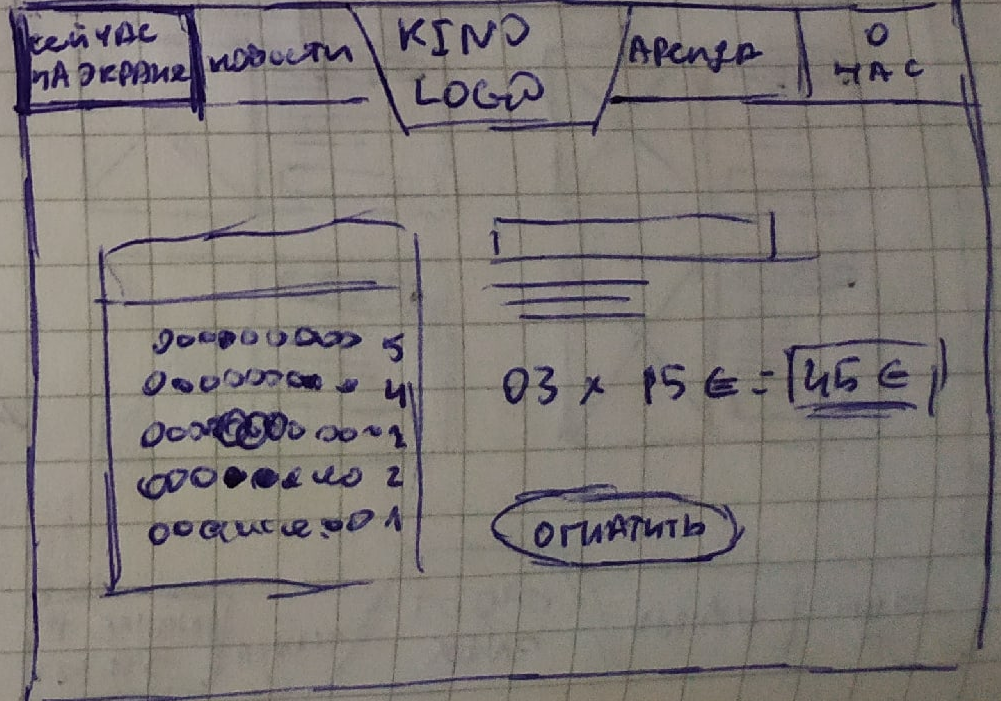 сейчас
на экране
новости
KINO
LOGO
Аренда
О
НАС
5
4
3
2
1
03 x 15 € = 45 €
оплатить